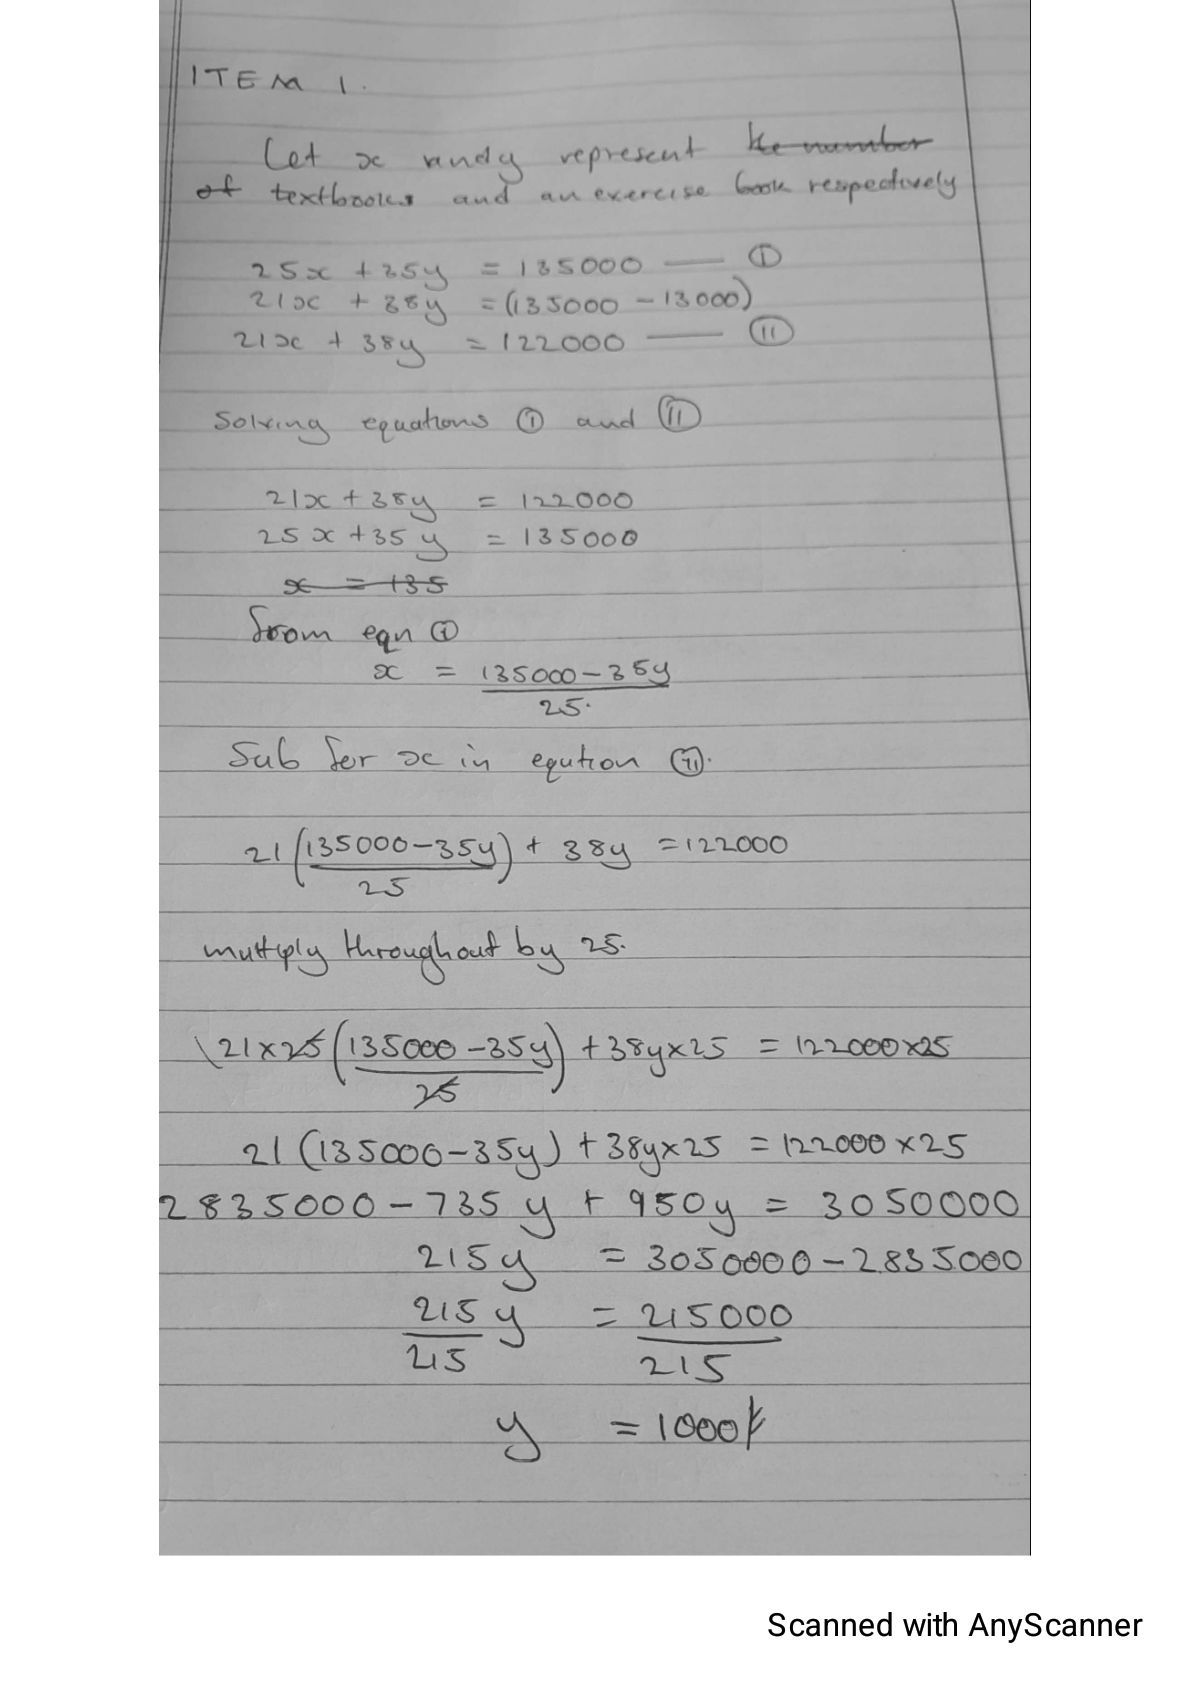 ITEM 1.
Let x and y represent the number
of textbooks and an exercise book respectively
25x + 35y = 135000 — (I)
21x + 38y = (135000 - 13000)
21x + 38y = 122000 — (II)
Solving equations (I) and (II)
21x + 38y = 122000
25x + 35y = 135000
x = 135
from eqn (I)
x = (135000 - 35y)/25.
Sub for x in eqution (II).
21((135000 - 35y)/25) + 38y = 122000
multiply throughout by 25.
21 x 25((135000 - 35y)/25) + 38y x 25 = 122000 x 25
21 (135000 - 35y) + 38y x 25 = 122000 x 25
2835000 - 735y + 950y = 3050000
215y = 3050000 - 2835000
215y/215 = 215000/215
y = 1000/=
Scanned with AnyScanner